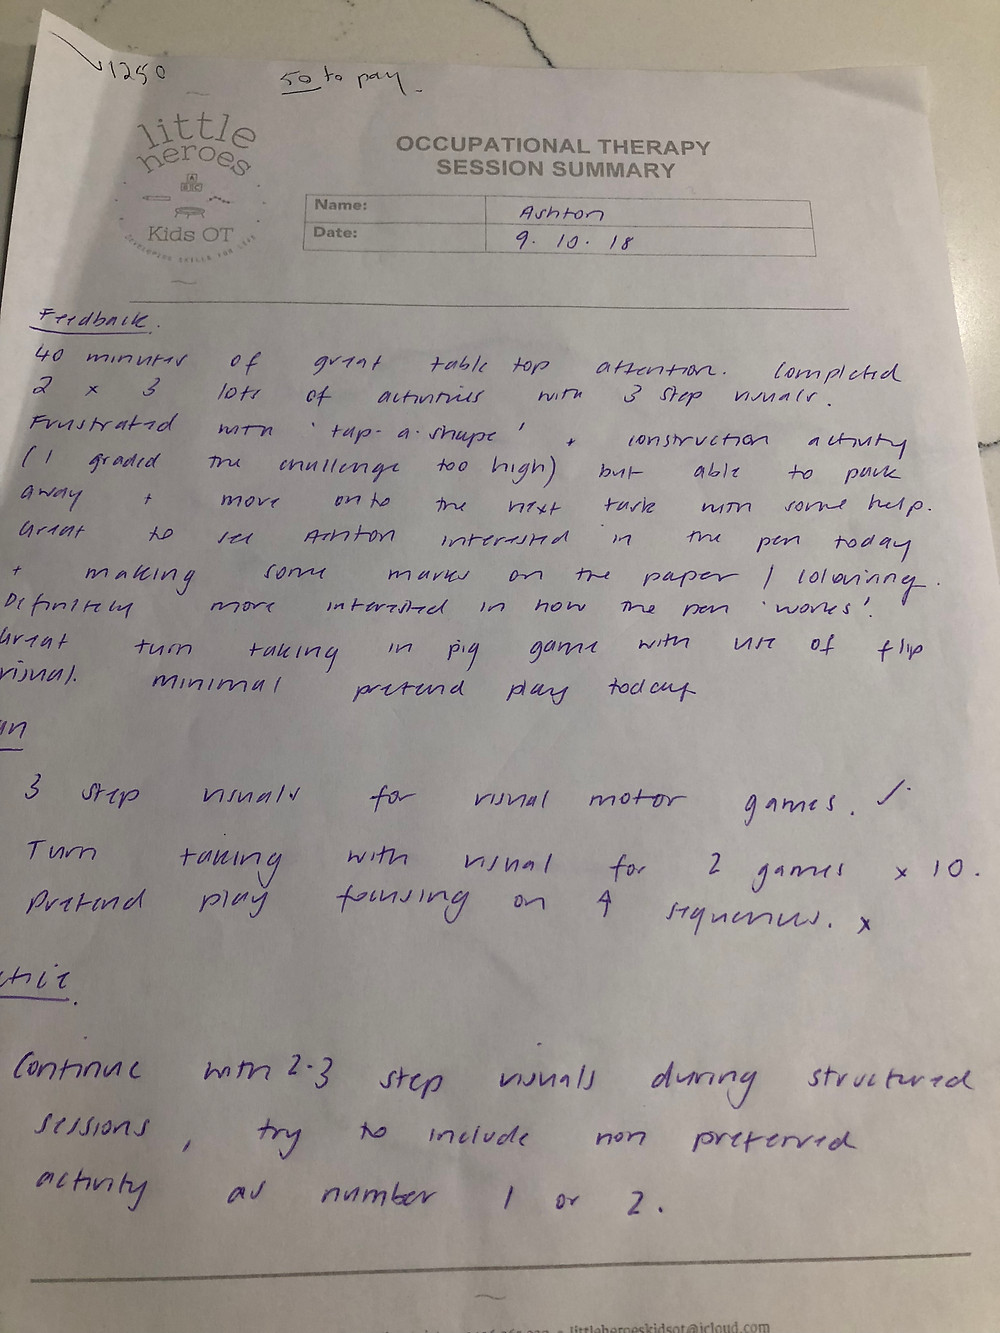 √1250
50 to pay.
little
heroes
A
B C
Kids OT
DEVELOPING SKILLS FOR LIFE
OCCUPATIONAL THERAPY
SESSION SUMMARY
Name: Ashton
Date: 9. 10. 18
Feedback.
40 minutes of great table top attention. Completed
2 x 3 lots of activities with 3 step visuals.
Frustrated with 'tap-a-shape' + construction activity
(I graded the challenge too high) but able to pack
away + move onto the next task with some help.
Great to see Ashton interested in the pen today
+ making some marks on the paper / colouring.
Definitely more interested in how the pen 'works'.
Great turn taking in pig game with use of flip
visual. minimal pretend play today
an
3 step visuals for visual motor games. ✓.
Turn taking with visual for 2 games x 10.
Pretend play focusing on 4 sequences. x
ctice.
Continue with 2-3 step visuals during structured
sessions, try to include non preferred
activity as number 1 or 2.
littleheroeskidsot@icloud.com